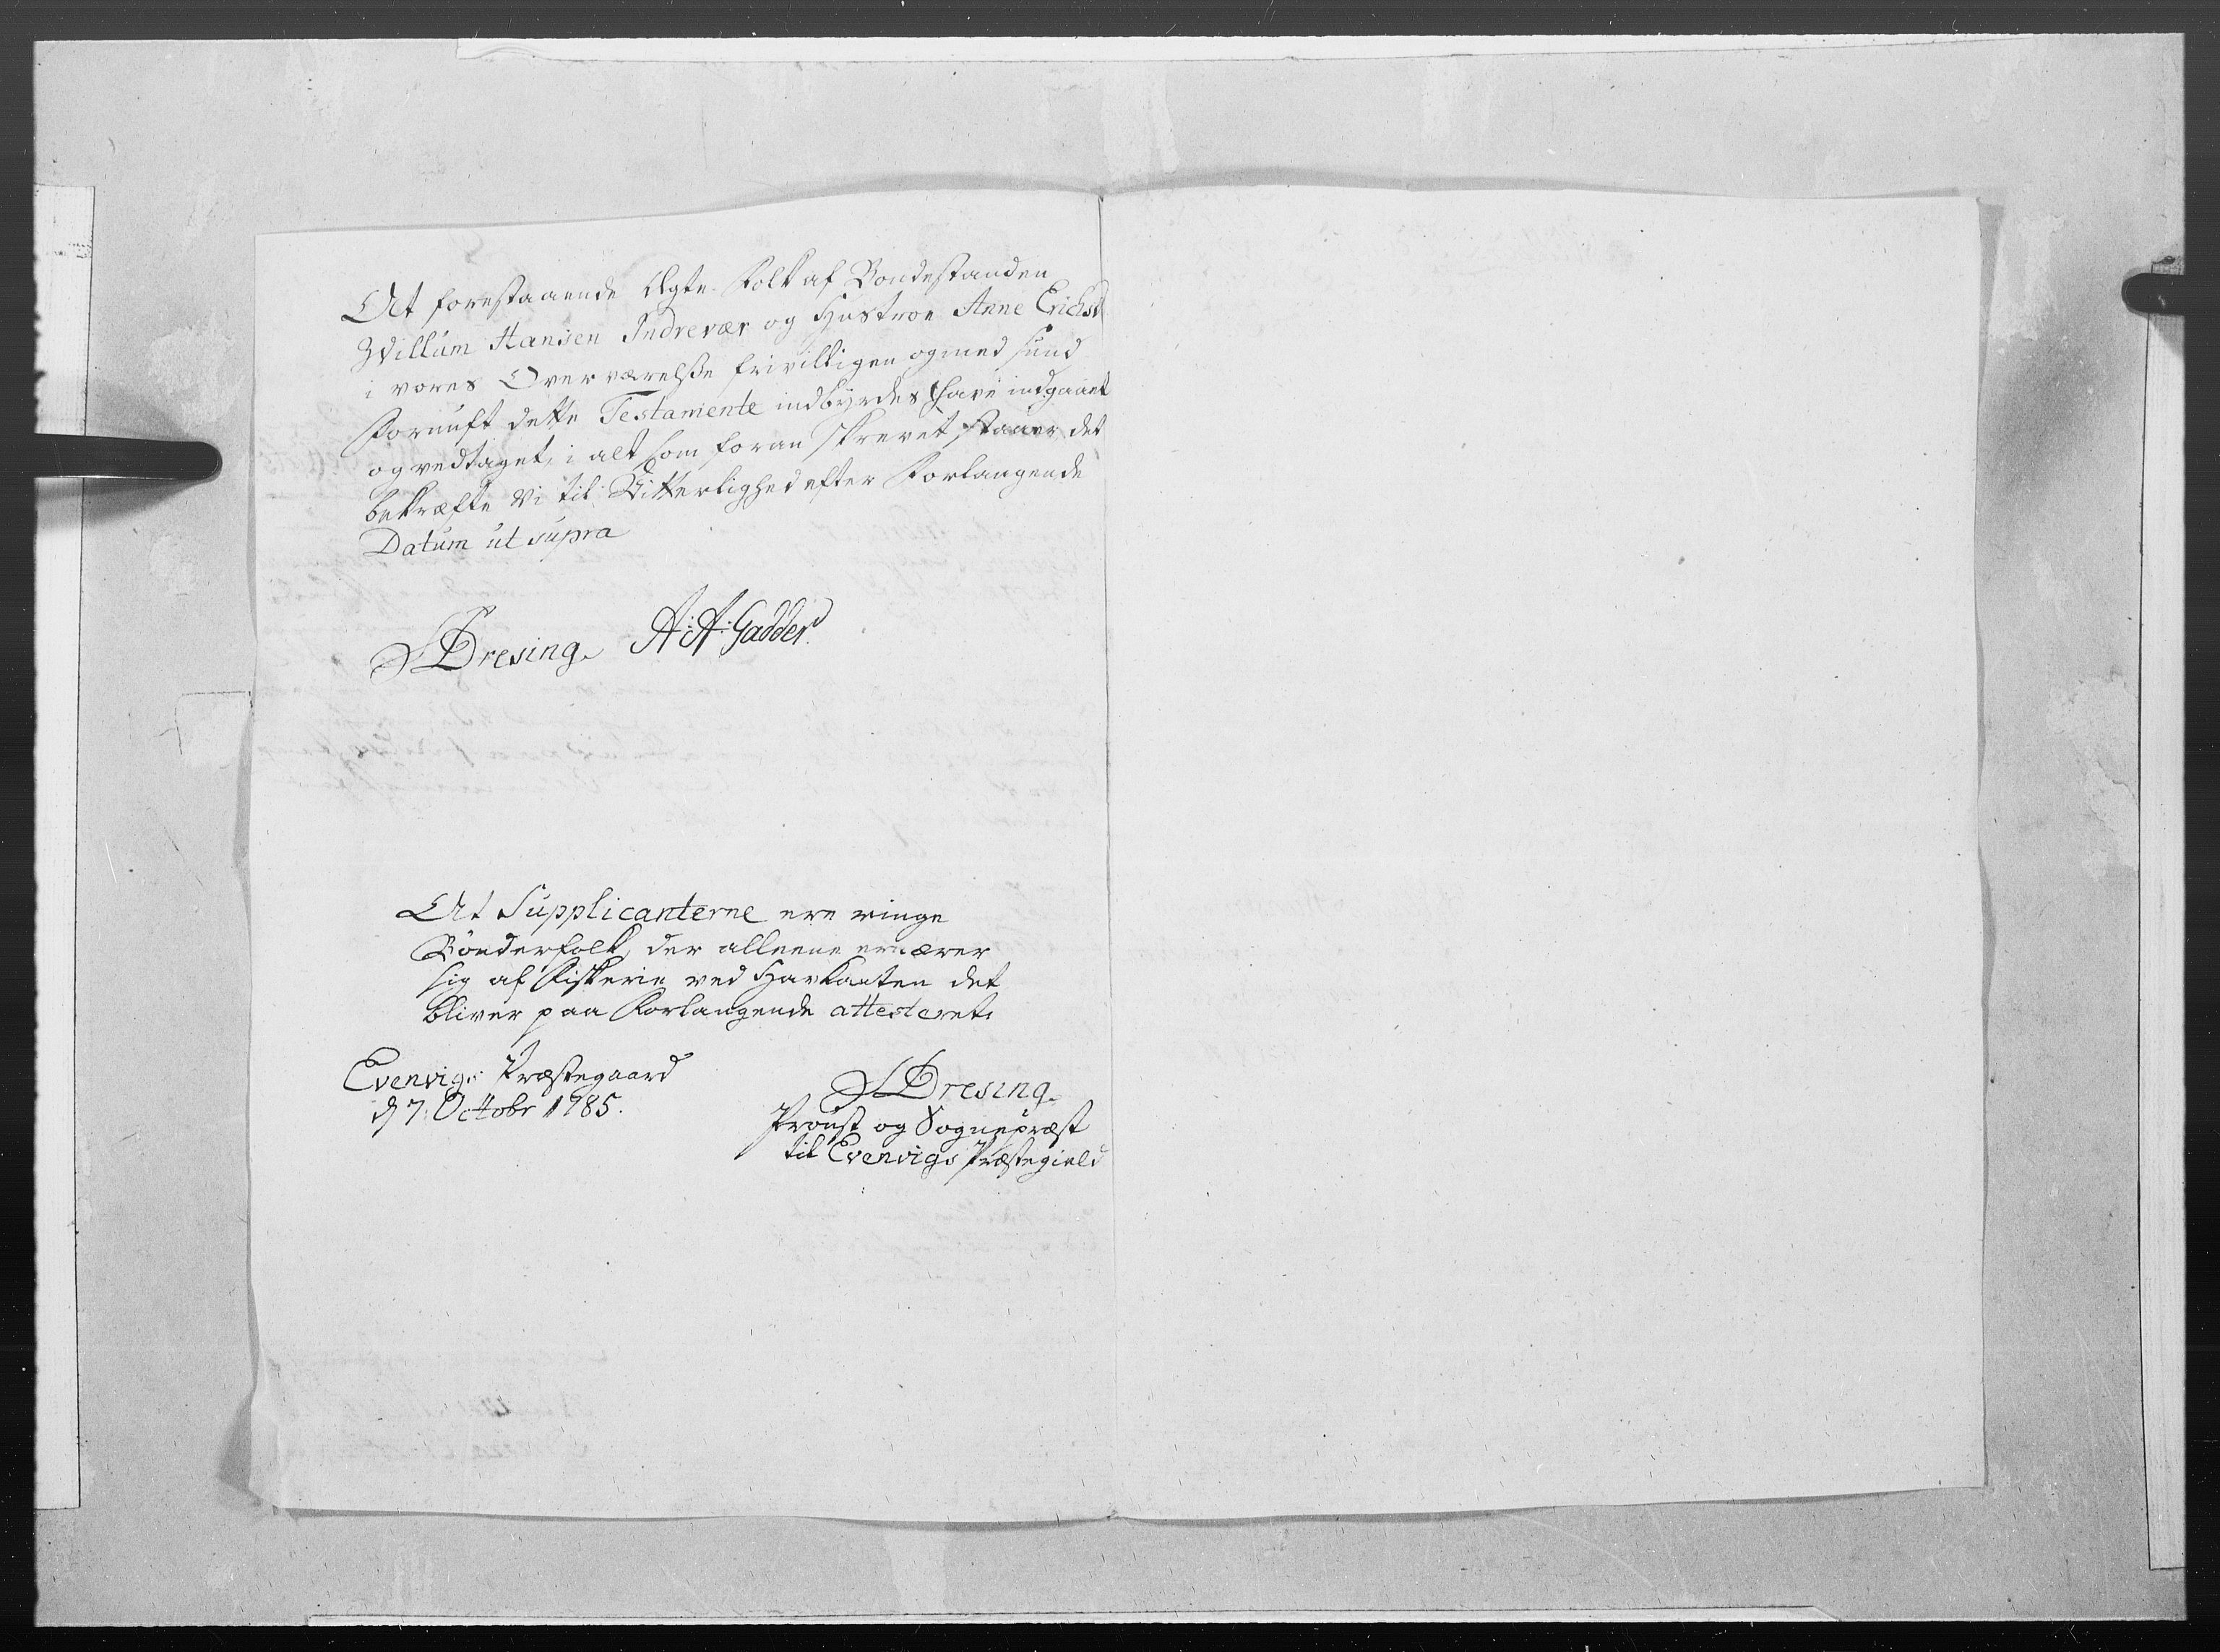 At forestaaende Ægte-Folk af Bondestanden
Willum Hansen Indrevær og Hustroe Anne Erichsd
i vores Overværelsse frivilligen og med sund
Fornuft dette Testamente indbyrdes have indgaaet
og vedtaget, i alt som foran skrevet staaer det
bekræfte Vi til Vitterlighed efter Forlangende
Datum ut supra
Dresing. A: A: Gadder
At Supplicanterne ere ringe
Bönderfolk, der alleene ernærer
sig af Fiskerie ved Havkanten det
bliver paa Forlangende attesteret.
Evenvigs Præstegaard
d 7: Octobr 1785.
Dresing.
Proust og Sognepræst
til Evenvigs Præstegield